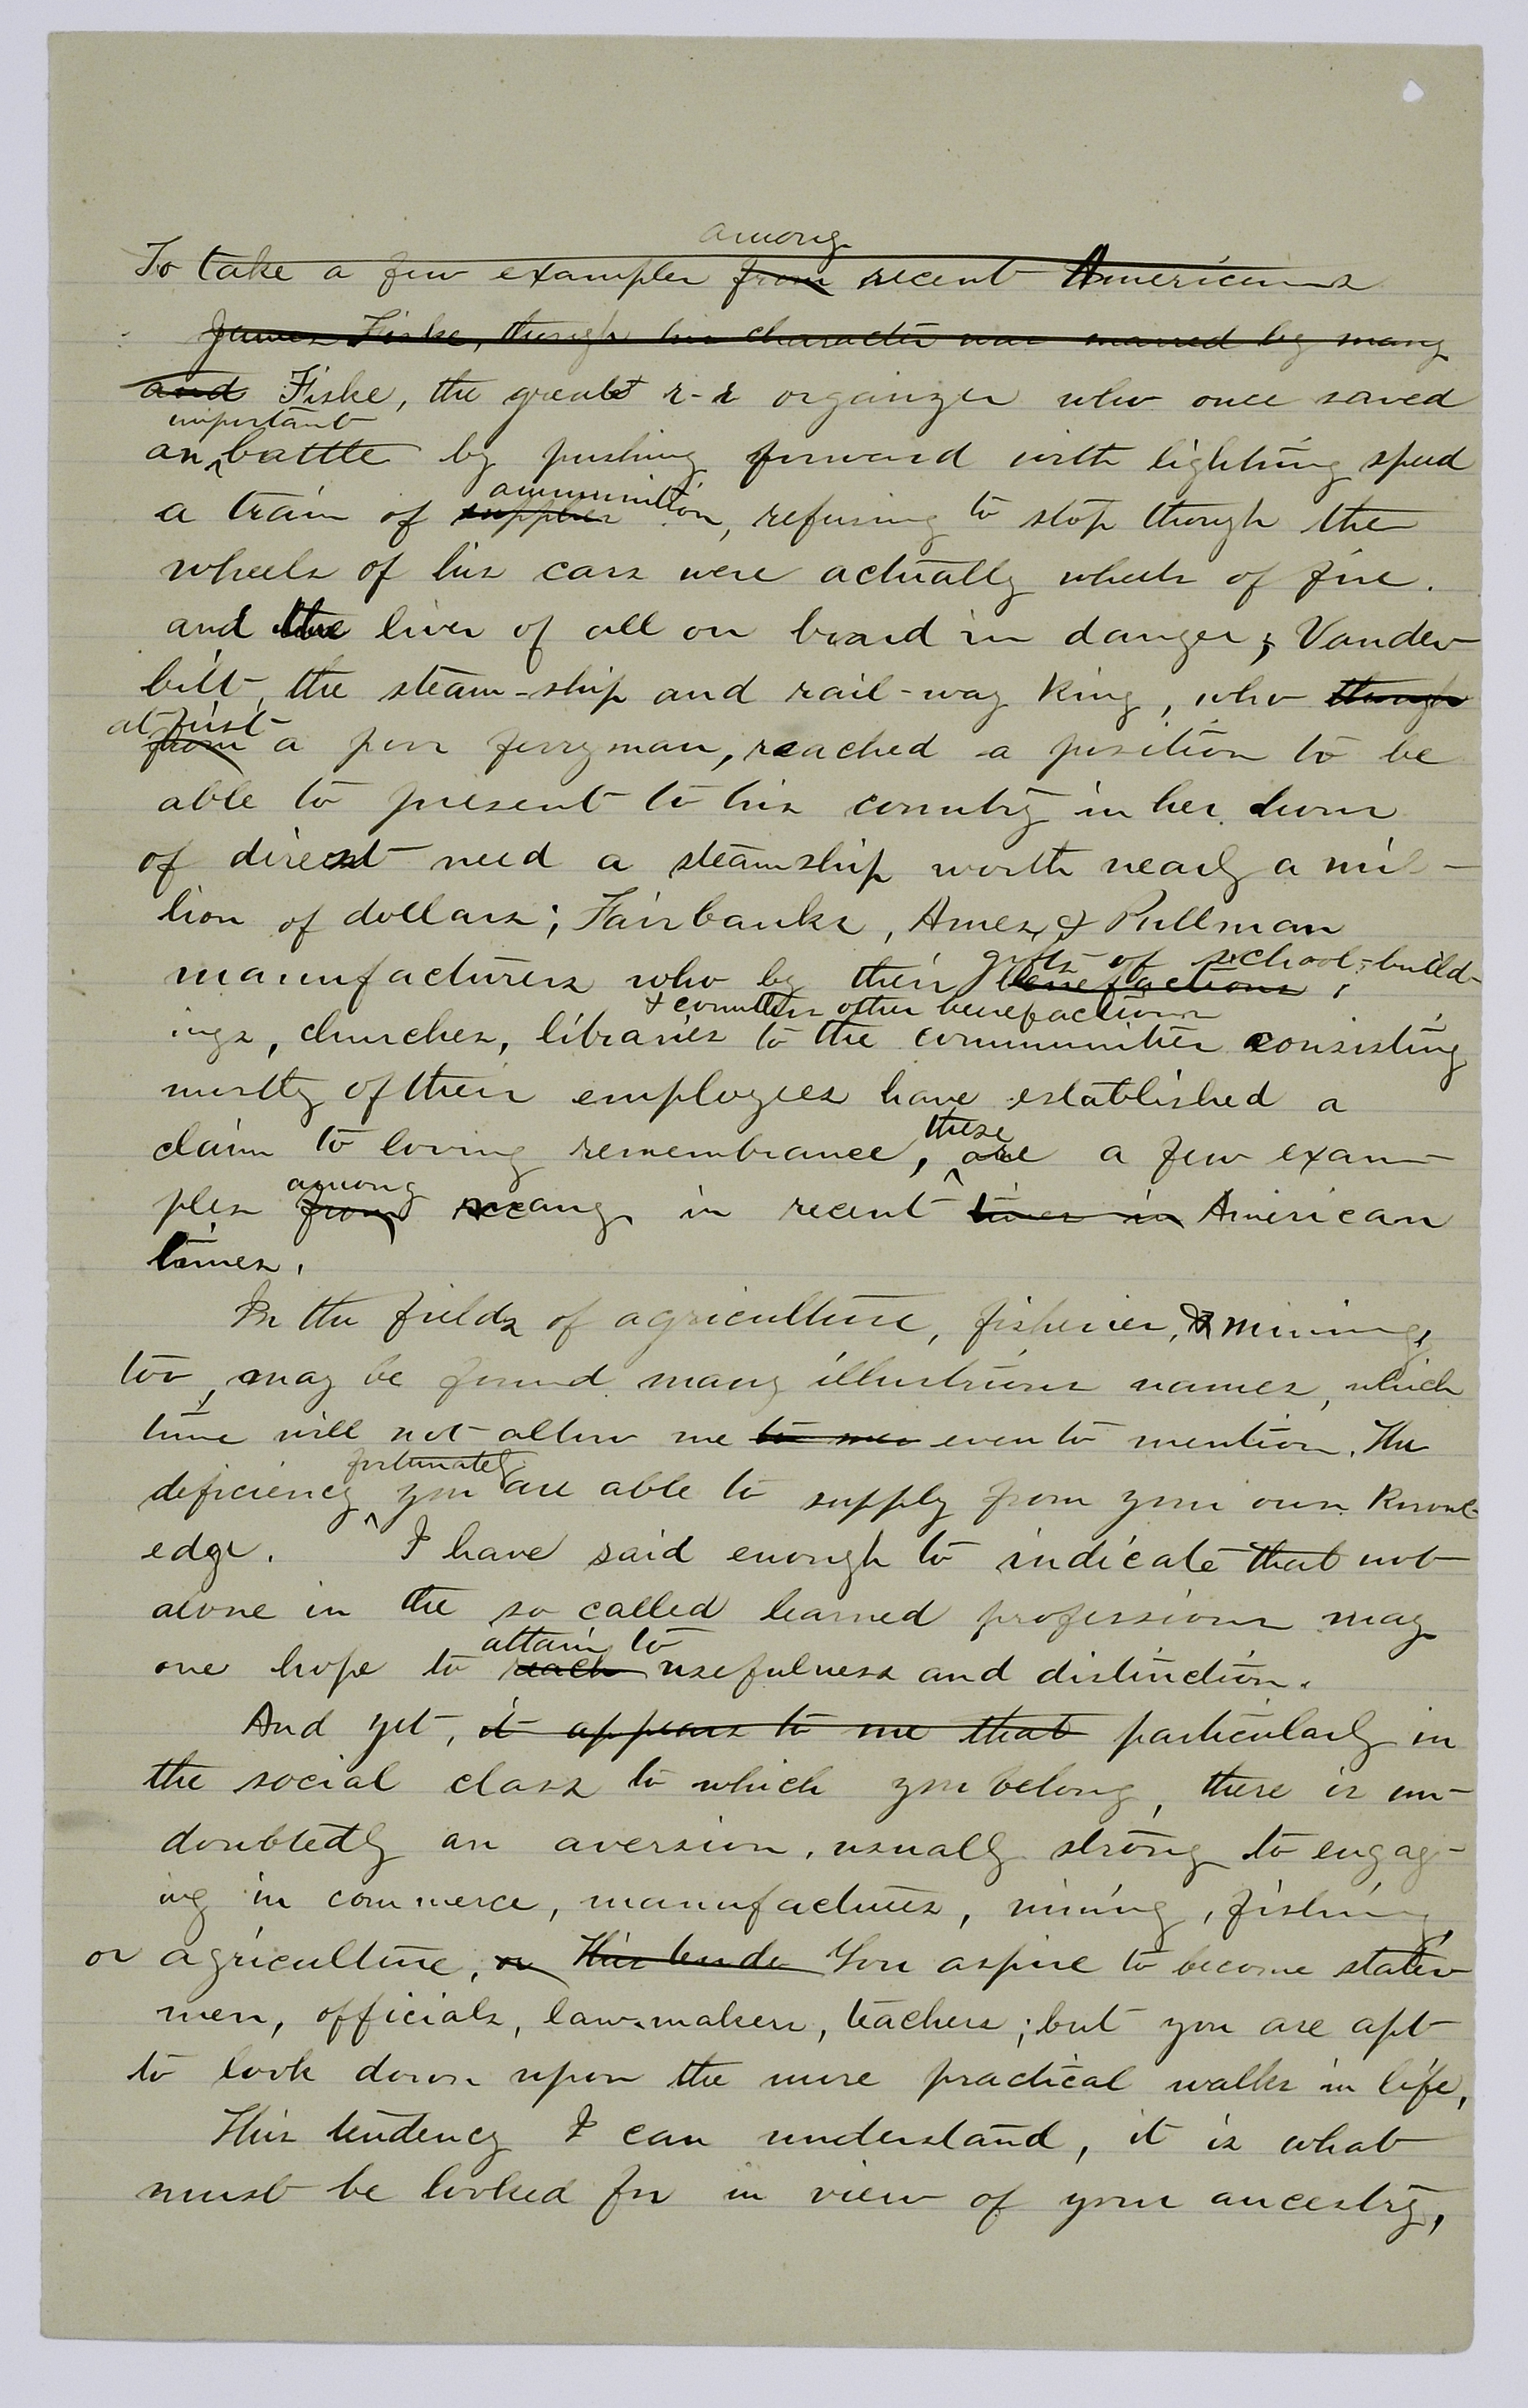 among
To take a few examples from recent Americans
James Fiske, though his character was marred by many
and Fiske, the great r-r organizer who once saved
important
an battle by pushing forward with lighting speed
ammunition
a train of supplies, refusing to stop though the
wheels of his cars were actually wheels of fire.
and the lives of all on board in danger; Vander-
bilt, the steam-ship and rail-way King, who though
at first
from a poor ferryman, reached a position to be
able to present to his country in her hour
of direst need a steamship worth nearly a mil-
lion of dollars; Fairbanks, Ames & Pullman
gifts of school-build-
manufacturers who by their benefactions,
& countless other benefactions
ings, churches, libraries to the communities consisting
mostly of their employees have established a
claim to loving remembrance, these are a few exam-
among
ples from many in recent times in American
times.
In the fields of agriculture, fisheries, & mining,
too, may be found many illustrious names, which
time will not allow me to men even to mention. The
fortunately
deficiency you are able to supply from your own Knowl-
edge. I have said enough to indicate that not
alone in the so called learned professions may
attain to
one hope to reach usefulness and distinction.
And yet, it appears to me that particularly in
the social class to which you belong, there is un-
doubtedly an aversion, usually strong to engag-
ing in commerce, manufactures, mining, fishing,
or agriculture, or This tende You aspire to become states-
men, officials, law-makers, teachers; but you are apt
to look down upon the more practical walks in life,
This tendency I can understand, it is what
must be looked for in view of your ancestry,